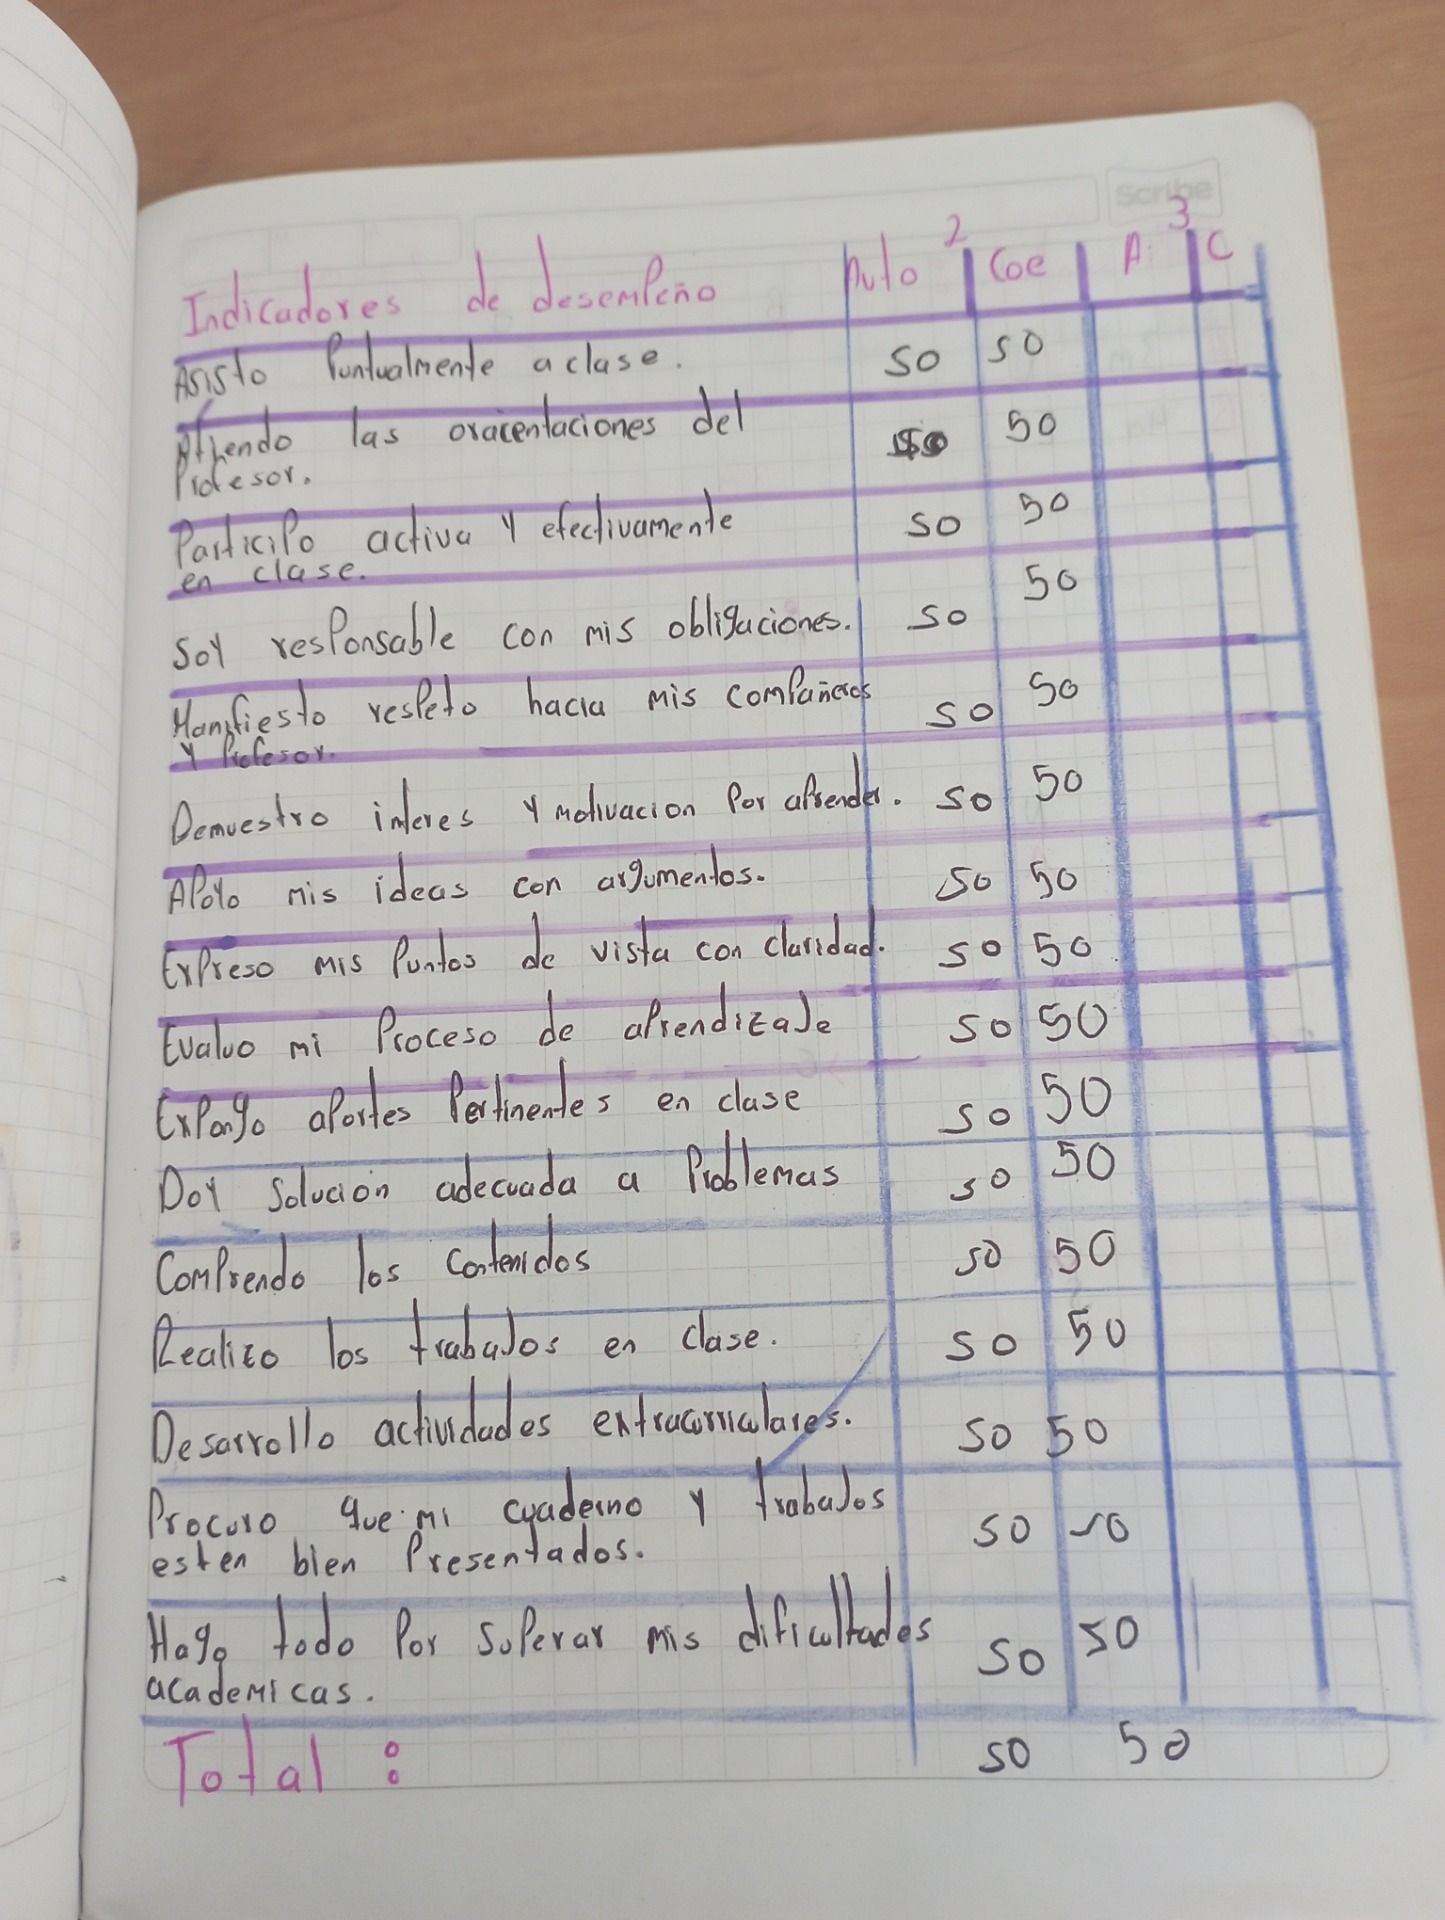 Scribe
2 3
Indicadores de desempeño Auto Coe A C
Asisto Puntualmente a clase. 50 50
Atiendo las oracentaciones del 50
Profesor.
Participo activa y efectivamente 50 50
en clase.
Soy responsable con mis obligaciones. 50 50
Manifiesto respeto hacia mis compañeros 50 50
y Profesor.
Demuestro interes y motivacion Por aprender. 50 50
Apoyo mis ideas con argumentos. 50 50
Expreso mis Puntos de vista con claridad. 50 50
Evaluo mi Proceso de aprendizaje 50 50
Expongo aportes Pertinentes en clase 50 50
Doy Solucion adecuada a Problemas 50 50
Comprendo los Contenidos 50 50
Realizo los trabajos en clase. 50 50
Desarrollo actividades extracurriculares. 50 50
Procuro que mi cuaderno y trabajos 50 50
esten bien Presentados.
Hago todo Por Superar mis dificultades 50 50
academicas.
Total : 50 50